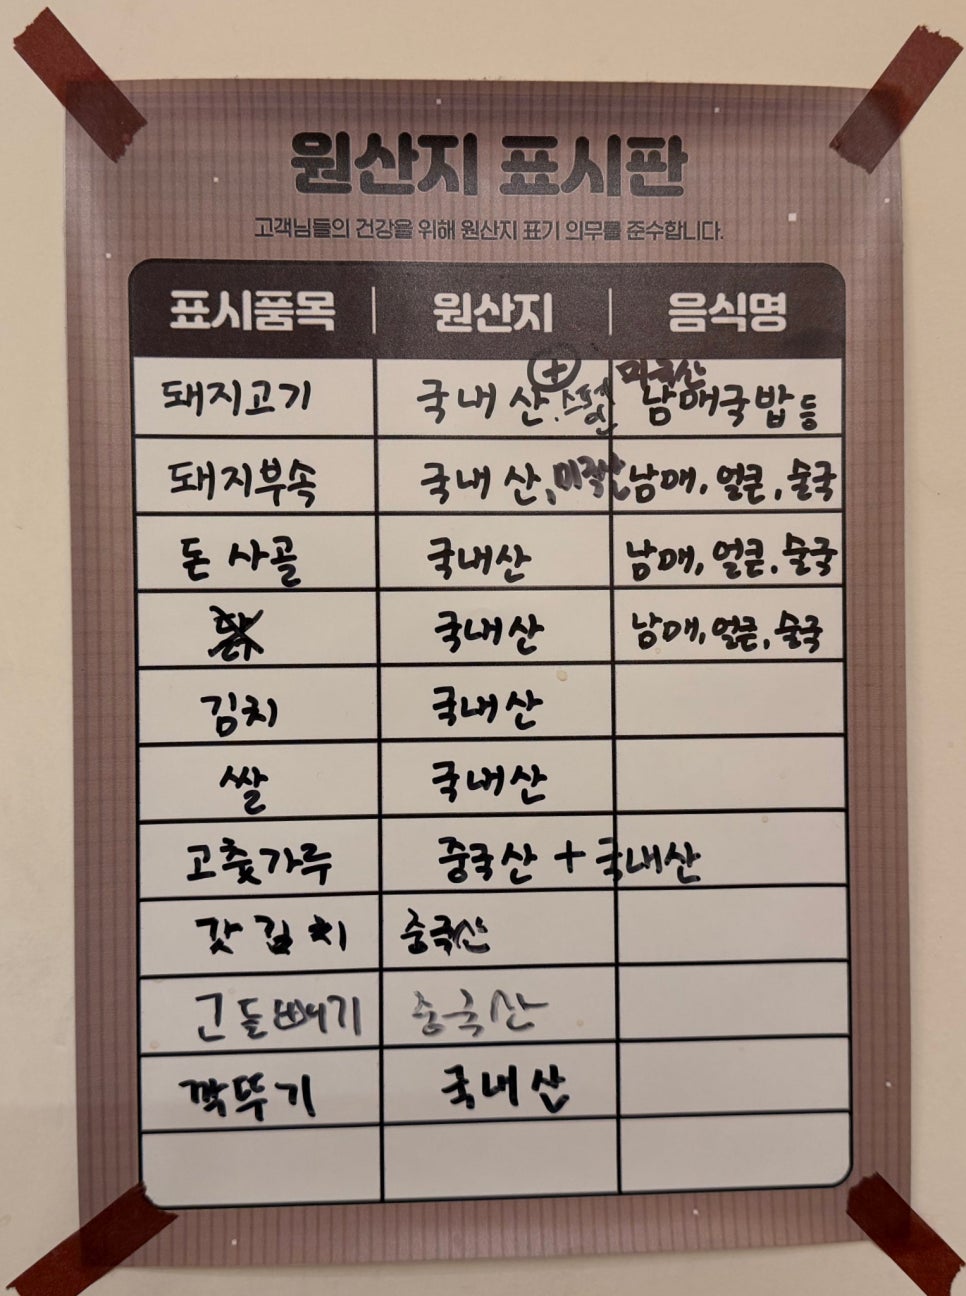 원산지 표시판
고객님들의 건강을 위해 원산지 표기 의무를 준수합니다.
표시품목 원산지 음식명
돼지고기 국내산 + 스페인산 미국산 남매국밥 등
돼지부속 국내산, 미국산 남매, 얼큰, 술국
돈 사골 국내산 남매, 얼큰, 술국
국내산 남매, 얼큰, 술국
김치 국내산
쌀 국내산
고춧가루 중국산 + 국내산
갓김치 중국산
고들빼기 중국산
깍뚜기 국내산